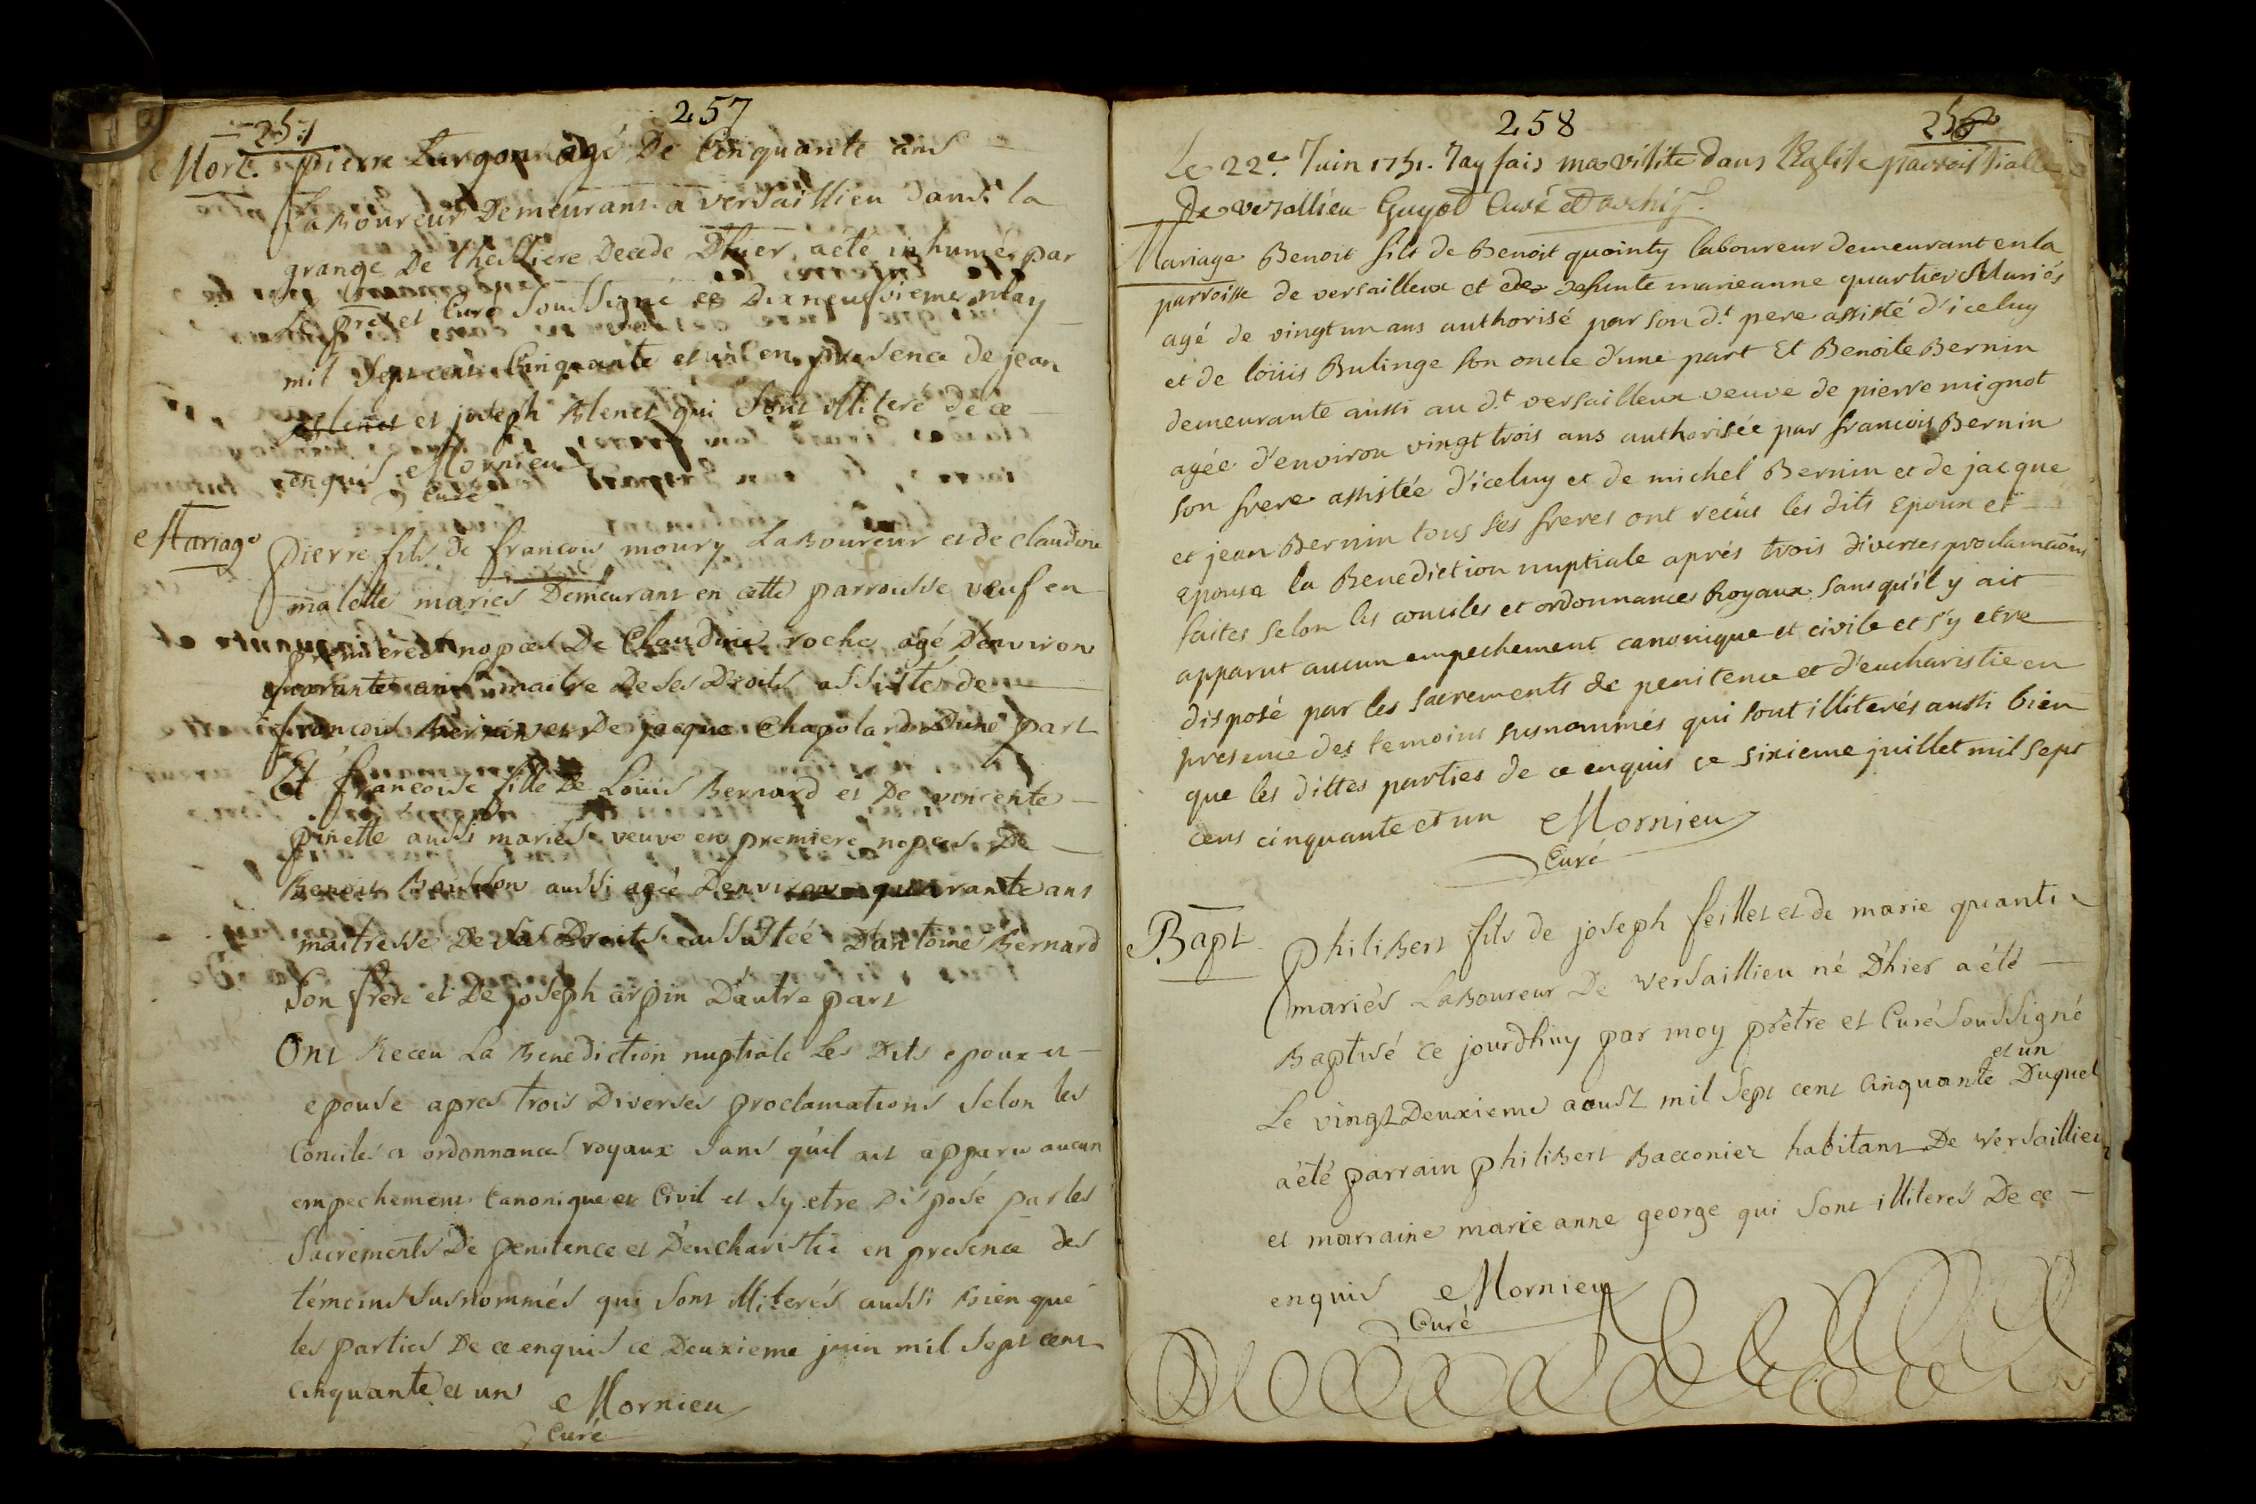 257
251
Mort. pierre Turgon agé De Cinquante ans
Laboureur Demeurant a versaillieu dans la
grange De Decede D'hier, a eté inhumé par
Le pretre Curé Soussigné ce Dixneufvieme may
mil Sept cent Cinquante et un en presence de jean
et joseph Blenet qui sont illiteré de ce
enquis Mornieu
Curé
Mariage pierre fils de francois moury Laboureur et de claudine
malette mariés Demeurant en cette parroisse veuf en
premieres nopces De Claudine roche agé D'environ
quarante ans maitre De Ses Droits assistés de
francois et De jacque Chapolard D'une part
Et francoise fille De Louis Bernard et De vincente
pinette aussi mariés veuve en premiere nopces De
Benoit aussi agée D'environ quarante ans
maitresse De Ses Droits assistée D'antoine Bernard
Son frere et De joseph arpin D'autre part
Ont Receu La Benediction nuptiale Les Dits epoux et
epouse apres trois Diverses proclamations Selon les
Conciles et ordonnances royaux Sans qu'il ait apparu aucun
empechement Canonique et Civil et Sy etre Disposé par les
Sacrements De penitence et D'eucharistie en presence des
témoins Susnommés qui Sont illiterés aussi Bien que
les parties De ce enquis ce Deuxieme juin mil Sept cent
cinquante et un Mornieu
Curé
258
Le 22e. Juin 1751. Jay fais ma visite dans l'Eglise parroissialle
De versallieu Guyot Curé et
Mariage Benoit fils de Benoit quointy laboureur demeurant en la
parroisse de versailleux et de defunte marieanne quartier Mariés
agé de vingt un ans authorisé par son d.t pere assisté d'iceluy
et de loüis Bulinge son oncle d'une part Et Benoite Bernin
demeurante aussi au d.t versailleux veuve de pierre mignot
agée d'environ vingt trois ans authorisée par francois Bernin
son frere assistée d'iceluy et de michel Bernin et de jacque
et jean Bernin tous ses freres ont reçus les dits Epoux et
epouse la Benediction nuptiale aprés trois diverses proclamaõns
faites selon les conciles et ordonnances Royaux sans qu'il y ait
apparut aucun empechement canonique et civile et s'y etre
disposé par les sacrements de penitence et d'eucharistie en
presence des temoins susnommés qui sont illiterés aussi bien
que les dittes parties de ce enquis ce sixieme juillet mil sept
cens cinquante et un Mornieu
Curé
Bapt philibert fils de joseph feillet et de marie quanti
mariés Laboureur De versaillieu né D'hier a été
Baptisé ce jourdhuy par moy prêtre et Curé Soussigné
et un
Le vingt Deuxieme aoust mil Sept cent Cinquante Duquel
a été parrain philibert Bacconier habitant De versaillieu
et marraine marie anne george qui Sont illiterés De ce
enquis Mornieu
Curé